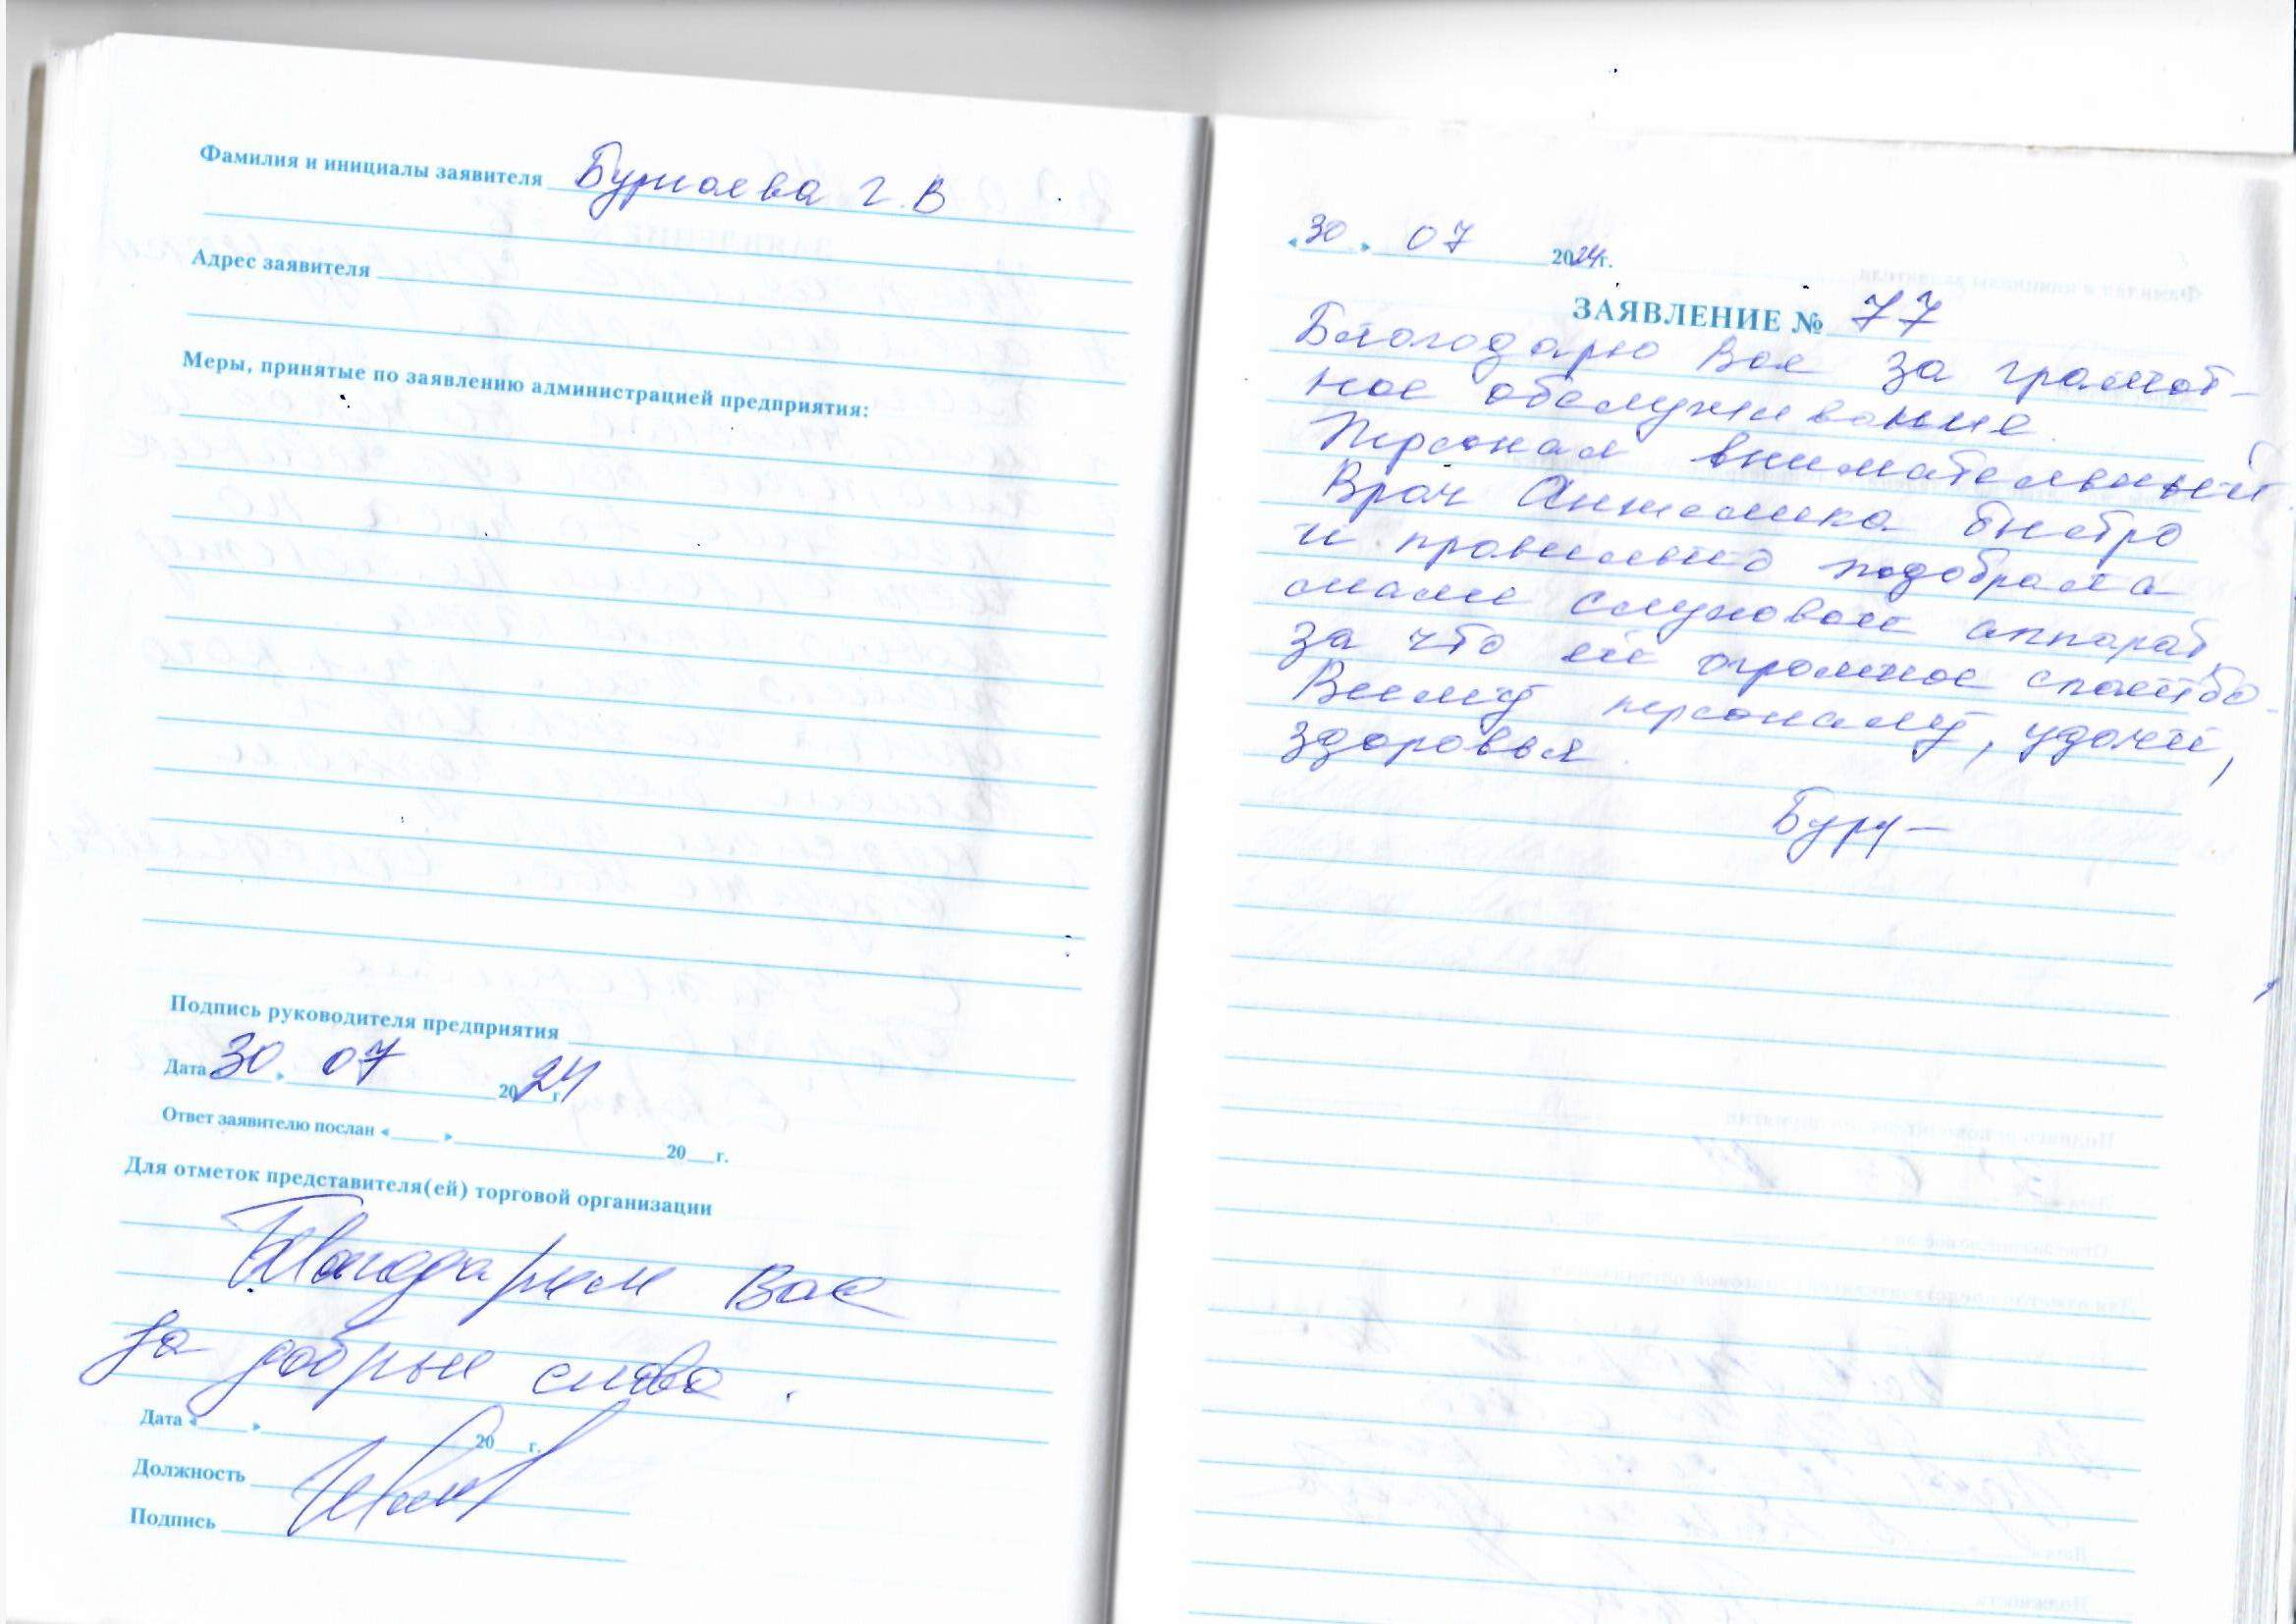 Фамилия и инициалы заявителя Бурнаева Г.В
Адрес заявителя
Меры, принятые по заявлению администрацией предприятия:
Подпись руководителя предприятия
Дата 30. 07 2024 г.
Ответ заявителю послан « » 20 г.
Для отметок представителя(ей) торговой организации
Благодарим Вас
за добрые слова.
Дата « » 20 г.
Должность
Подпись
«30» 07 2024г.
ЗАЯВЛЕНИЕ № 77
Благодарю Вас за грамот-
ное обслуживание.
Персонал внимательный
Врач Анжелика быстро
и правильно подобрала
маме слуховой аппарат,
за что ей огромное спасибо.
Всему персоналу, удачи,
здоровья.